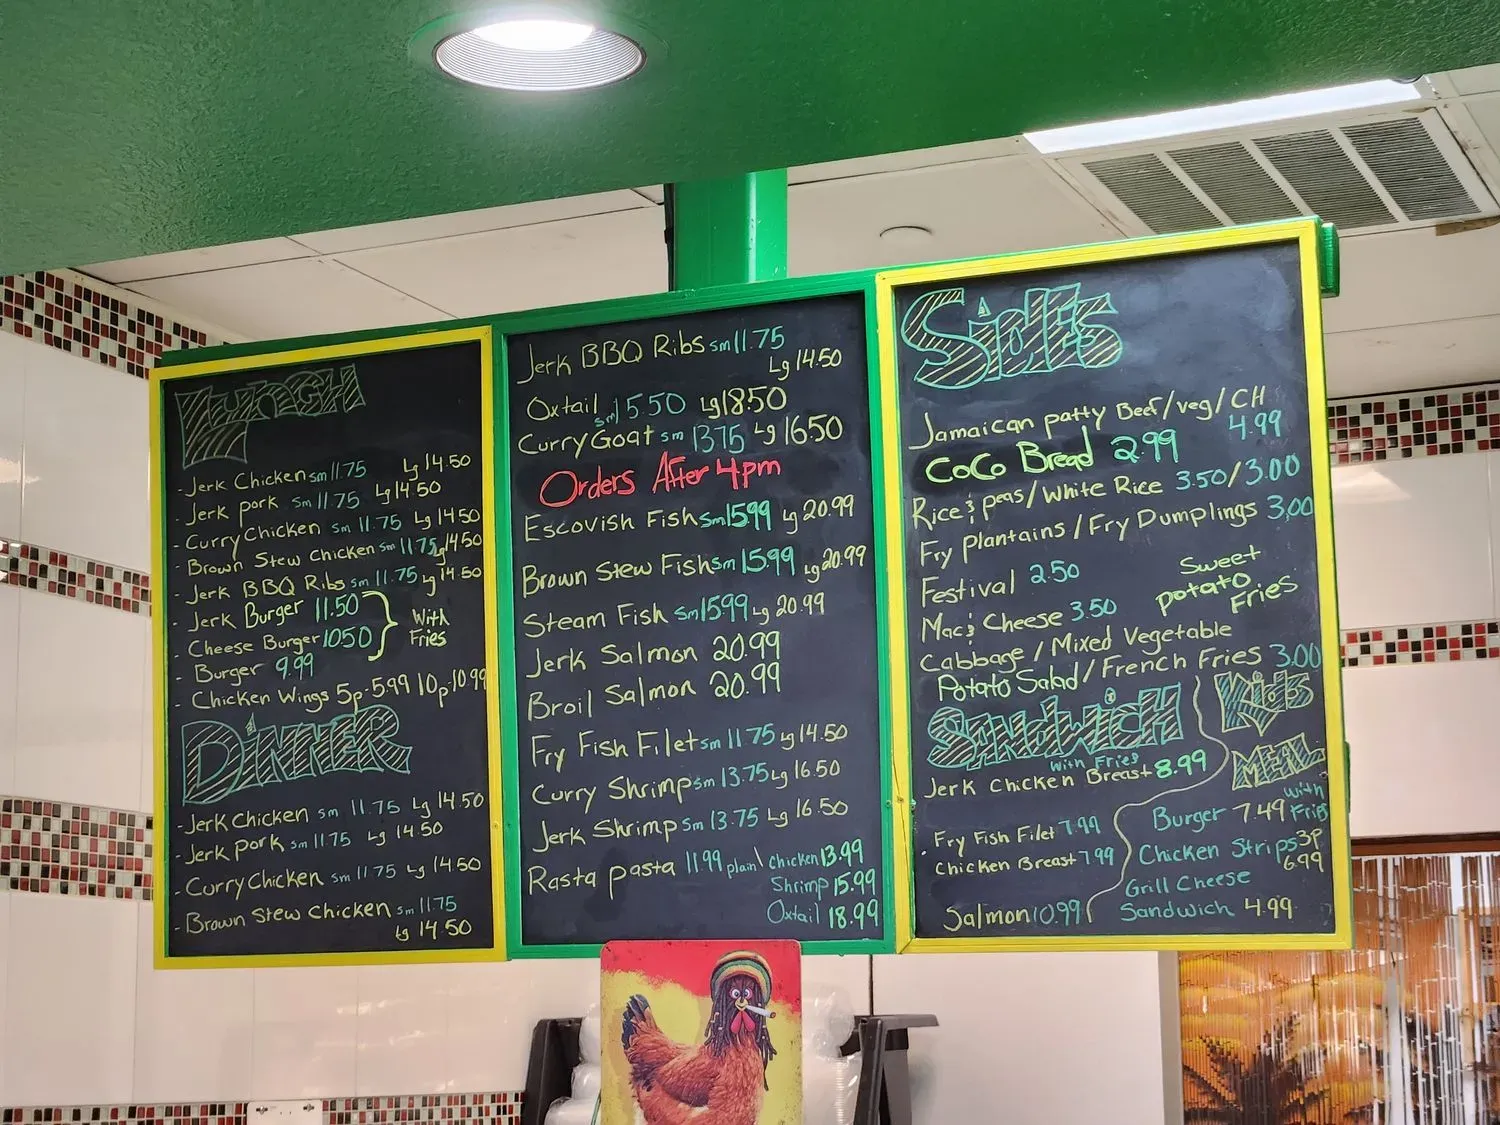 LUNCH
- Jerk Chicken sm 11.75 Lg 14.50
- Jerk pork sm 11.75 Lg 14.50
- Curry Chicken sm 11.75 Lg 14.50
- Brown Stew Chicken sm 11.75 Lg 14.50
- Jerk BBQ Ribs sm 11.75 Lg 14.50
- Jerk Burger 11.50
- Cheese Burger 10.50
- Burger 9.99
With
Fries
- Chicken Wings 5p-5.99 10p-10.99
DiNNER
- Jerk Chicken sm 11.75 Lg 14.50
- Jerk pork sm 11.75 Lg 14.50
- Curry Chicken sm 11.75 Lg 14.50
- Brown Stew Chicken sm 11.75
Lg 14.50
Jerk BBQ Ribs sm 11.75
Lg 14.50
Oxtail sm 15.50 Lg 18.50
Curry Goat sm 13.75 Lg 16.50
Orders After 4pm
Escovish Fish sm 15.99 Lg 20.99
Brown Stew Fish sm 15.99 Lg 20.99
Steam Fish sm 15.99 Lg 20.99
Jerk Salmon 20.99
Broil Salmon 20.99
Fry Fish Filet sm 11.75 Lg 14.50
Curry Shrimp sm 13.75 Lg 16.50
Jerk Shrimp sm 13.75 Lg 16.50
Rasta pasta 11.99 plain\ chicken 13.99
Shrimp 15.99
Oxtail 18.99
SidEs
Jamaican patty Beef/veg/CH
4.99
CoCo Bread 2.99
Rice & peas/White Rice 3.50/3.00
Fry plantains/Fry Dumplings 3.00
Festival 2.50
Sweet
potato
Fries
Mac & Cheese 3.50
Cabbage/Mixed Vegetable
Potato Salad/French Fries 3.00
SANDWiCH
With Fries
Jerk Chicken Breast 8.99
Fry Fish Filet 7.99
Chicken Breast 7.99
Salmon 10.99
Kids
MEAL
with
Fries
Burger 7.49
Chicken Strips 3p
6.99
Grill Cheese
Sandwich 4.99